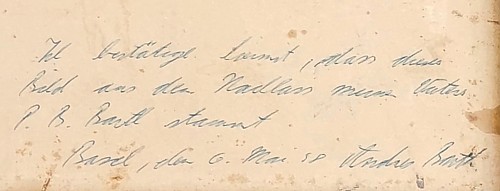 Ich bestätige hiermit, dass dieses
Bild aus dem Nachlass meines Vaters
P. B. Barth stammt
Basel, den 6. Mai 58 Andres Barth